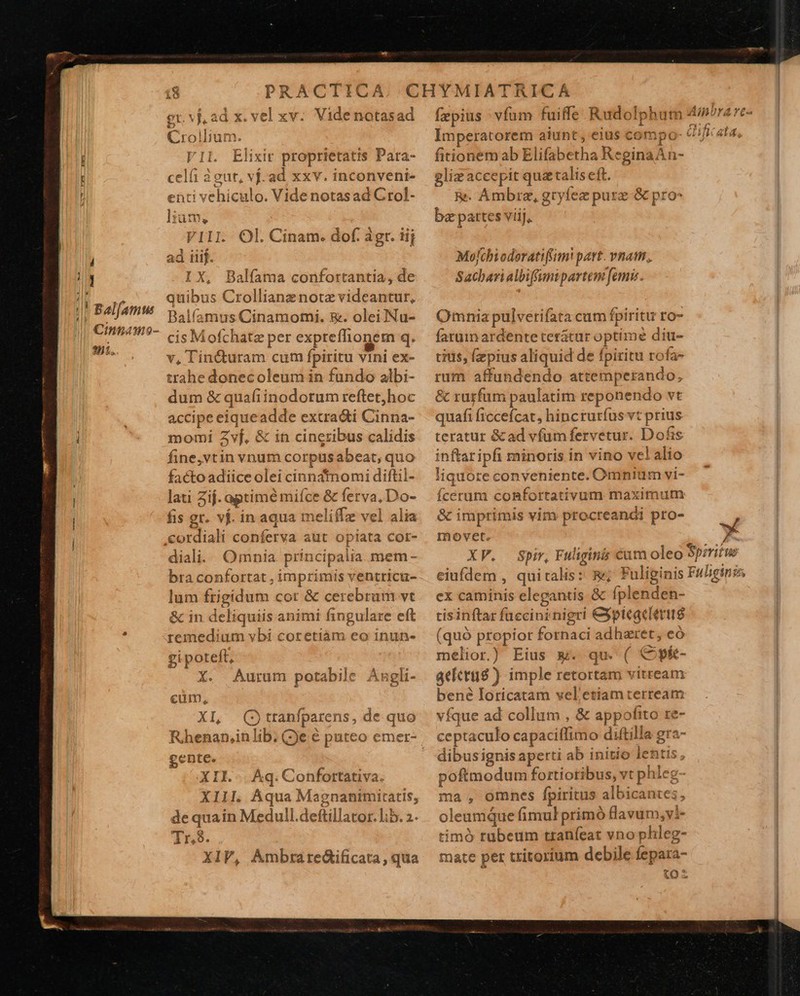 18 PRACTICA CHYMIATRICA
gr. vj, ad x. vel xv. Vide notas ad
Crollium.
VII. Elixir proprietatis Para-
celsi à gut, vj. ad xxv. in conveni-
enti vehiculo. Vide notas ad Crol-
lium,
VIII. Ol. Cinam. dos. à gr. iij
ad iiij.
IX, Balsama confortantia, de
quibus Crollianæ notæ videantur,
Balsamus
Balsamus Cinamomi, ℞. olei Nu-
Cinnamo-
cis Moschatæ per expressionem q.
mi.
v, Tincturam cum spiritu vini ex-
trahe donec oleum in fundo albi-
dum & quasi inodorum restet, hoc
accipe eique adde extracti Cinna-
momi ʒvj, & in cineribus calidis
sine, vt in vnum corpus abeat, quo
facto adiice olei cinnamomi distil-
lati ʒij. optimè misce & serva. Do-
sis gr. vj. in aqua melissæ vel alia
cordiali conserva aut opiata cor-
diali. Omnia principalia mem-
bra confortat, imprimis ventricu-
lum frigidum cor & cerebrum vt
& in deliquiis animi singulare est
remedium vbi cor etiam eo inun-
gi potest,
X. Aurum potabile Angli-
cùm,
XI, ☉ transparens, de quo
Rhenan, in lib. ☉e è puteo emer-
gente.
XII. Aq. Confortativa.
XIII. Aqua Magnanimitatis,
de qua in Medull. destillator. lib. 2.
Tr. 8.
XIV, Ambra rectificata, qua
sæpius vsum fuisse Rudolphum
Ambra re-
Imperatorem aiunt, eius compo-
ctificata,
sitionem ab Elisabetha Regina An-
gliæ accepit quæ talis est.
℞. Ambræ, gryseæ puræ & pro-
bæ partes viij,
Moschi odoratissimi part. vnam,
Sachari albissimi partem semis.
Omnia pulverisata cum spiritu ro-
sarum ardente terãtur optimè diu-
tius, sæpius aliquid de spiritu rosa-
rum affundendo attemperando,
& rursum paulatim reponendo vt
quasi siccescat, hinc rursus vt prius
teratur & ad vsum servetur. Dosis
instar ipsi minoris in vino vel alio
liquore conveniente. Omnium vi-
scerum confortativum maximum
& imprimis vim procreandi pro-
movet.
XV. Spir, Fuliginis cum oleo
Spiritus
eiusdem, qui talis: ℞; Fuliginis
Fuliginis,
ex caminis elegantis & splenden-
tis instar succini nigri Spiegelruß
(quò propior fornaci adhæret, eò
melior.) Eius ℞. qu. ( Spie-
gelruß ) imple retortam vitream
benè loricatam vel etiam terream
vsque ad collum, & apposito re-
ceptaculo capacissimo distilla gra-
dibus ignis aperti ab initio lentis,
postmodum fortioribus, vt phleg-
ma, omnes spiritus albicantes,
oleumque simul primò flavum, vl-
timò rubeum transeat vno phleg-
mate per tritorium debile separa-
to: